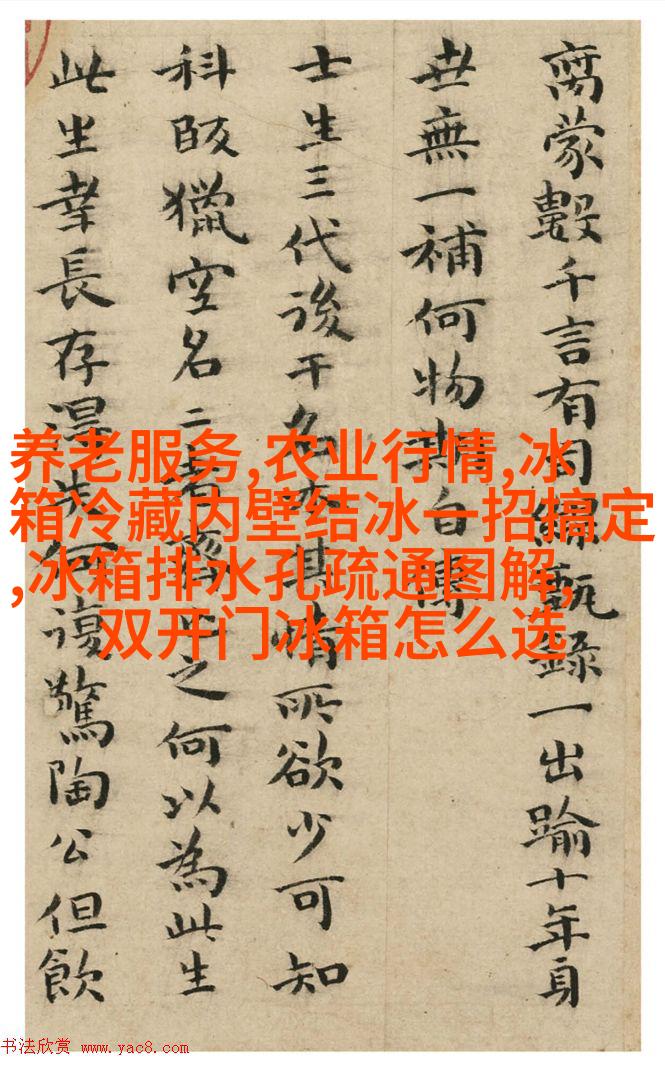 养老服务,农业行情,冰
箱冷藏内壁结冰一招搞定
,冰箱排水孔疏通图解,
双开门冰箱怎么选
蒙數千言有司甄錄一出踰十年身
世無一補何物期自
士生三代後干名亦其情所欲少可知
科獵空名二者之何以為此生
此生幸長存何復驚陶公但飲
书法欣赏 www.yac8.com